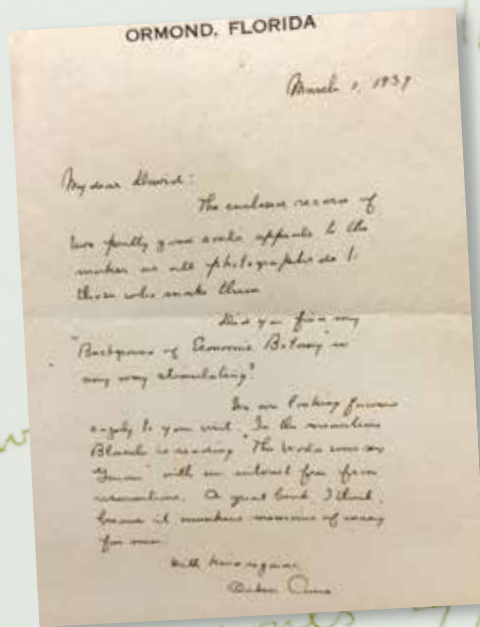 ORMOND, FLORIDA
March 1, 1939
My dear David:
The enclosed record of
two pretty good souls appeals to the
maker as all photographs do to
those who make them
Did you find my
"Background of Economic Botany" in
any way stimulating?
We are looking forward
to your visit. In the meantime
Blanche is reading "The World was my
Garden" with an interest free from
A great book, I think,
because it awakens memories of
for me.
With kind regards,
Oakes Ames